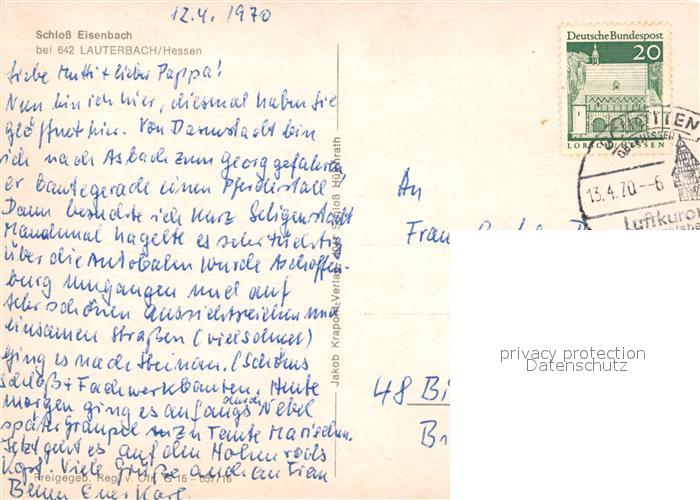 12.4. 1970
Schloß Eisenbach
bei 642 LAUTERBACH/Hessen
Liebe Mutti + lieber Pappa!
Nun bin ich hier, diesmal haben Sie
geöffnet hier. Von Darmstadt bin
ich nach Asbach zum Georg gefahren
er baute gerade einen Pferdestall
Dann besuchte ich kurz Seligenstadt
Manchmal hagelte es sehr tüchtig
über die Autobahn wurde Aschaffen-
burg umgangen und auf
sehr schönen aussichtsreichen und
einsamen Straßen (viel Schnee)
ging es nach Steinau. (Schönes
Schloß + Fachwerkbauten. Heute
morgen ging es anfangs durch Nebel
später Graupel zu Tante Mariechen.
Jetzt geht es auf den Hohenrods
Kopf. Viele Grüße auch an Frau
Euer Karl
Freigegeb. Reg. v. Ofr. G 16 -
Jakob Krapohl-Verlag, 4049 Schloß Hülchrath
Deutsche Bundespost
20
LORSCH HESSEN
SCHOTTEN
OBERHESSEN
13.4.70--6
Luftkuror
An
Frau
48 Bi
B
privacy protection
Datenschutz